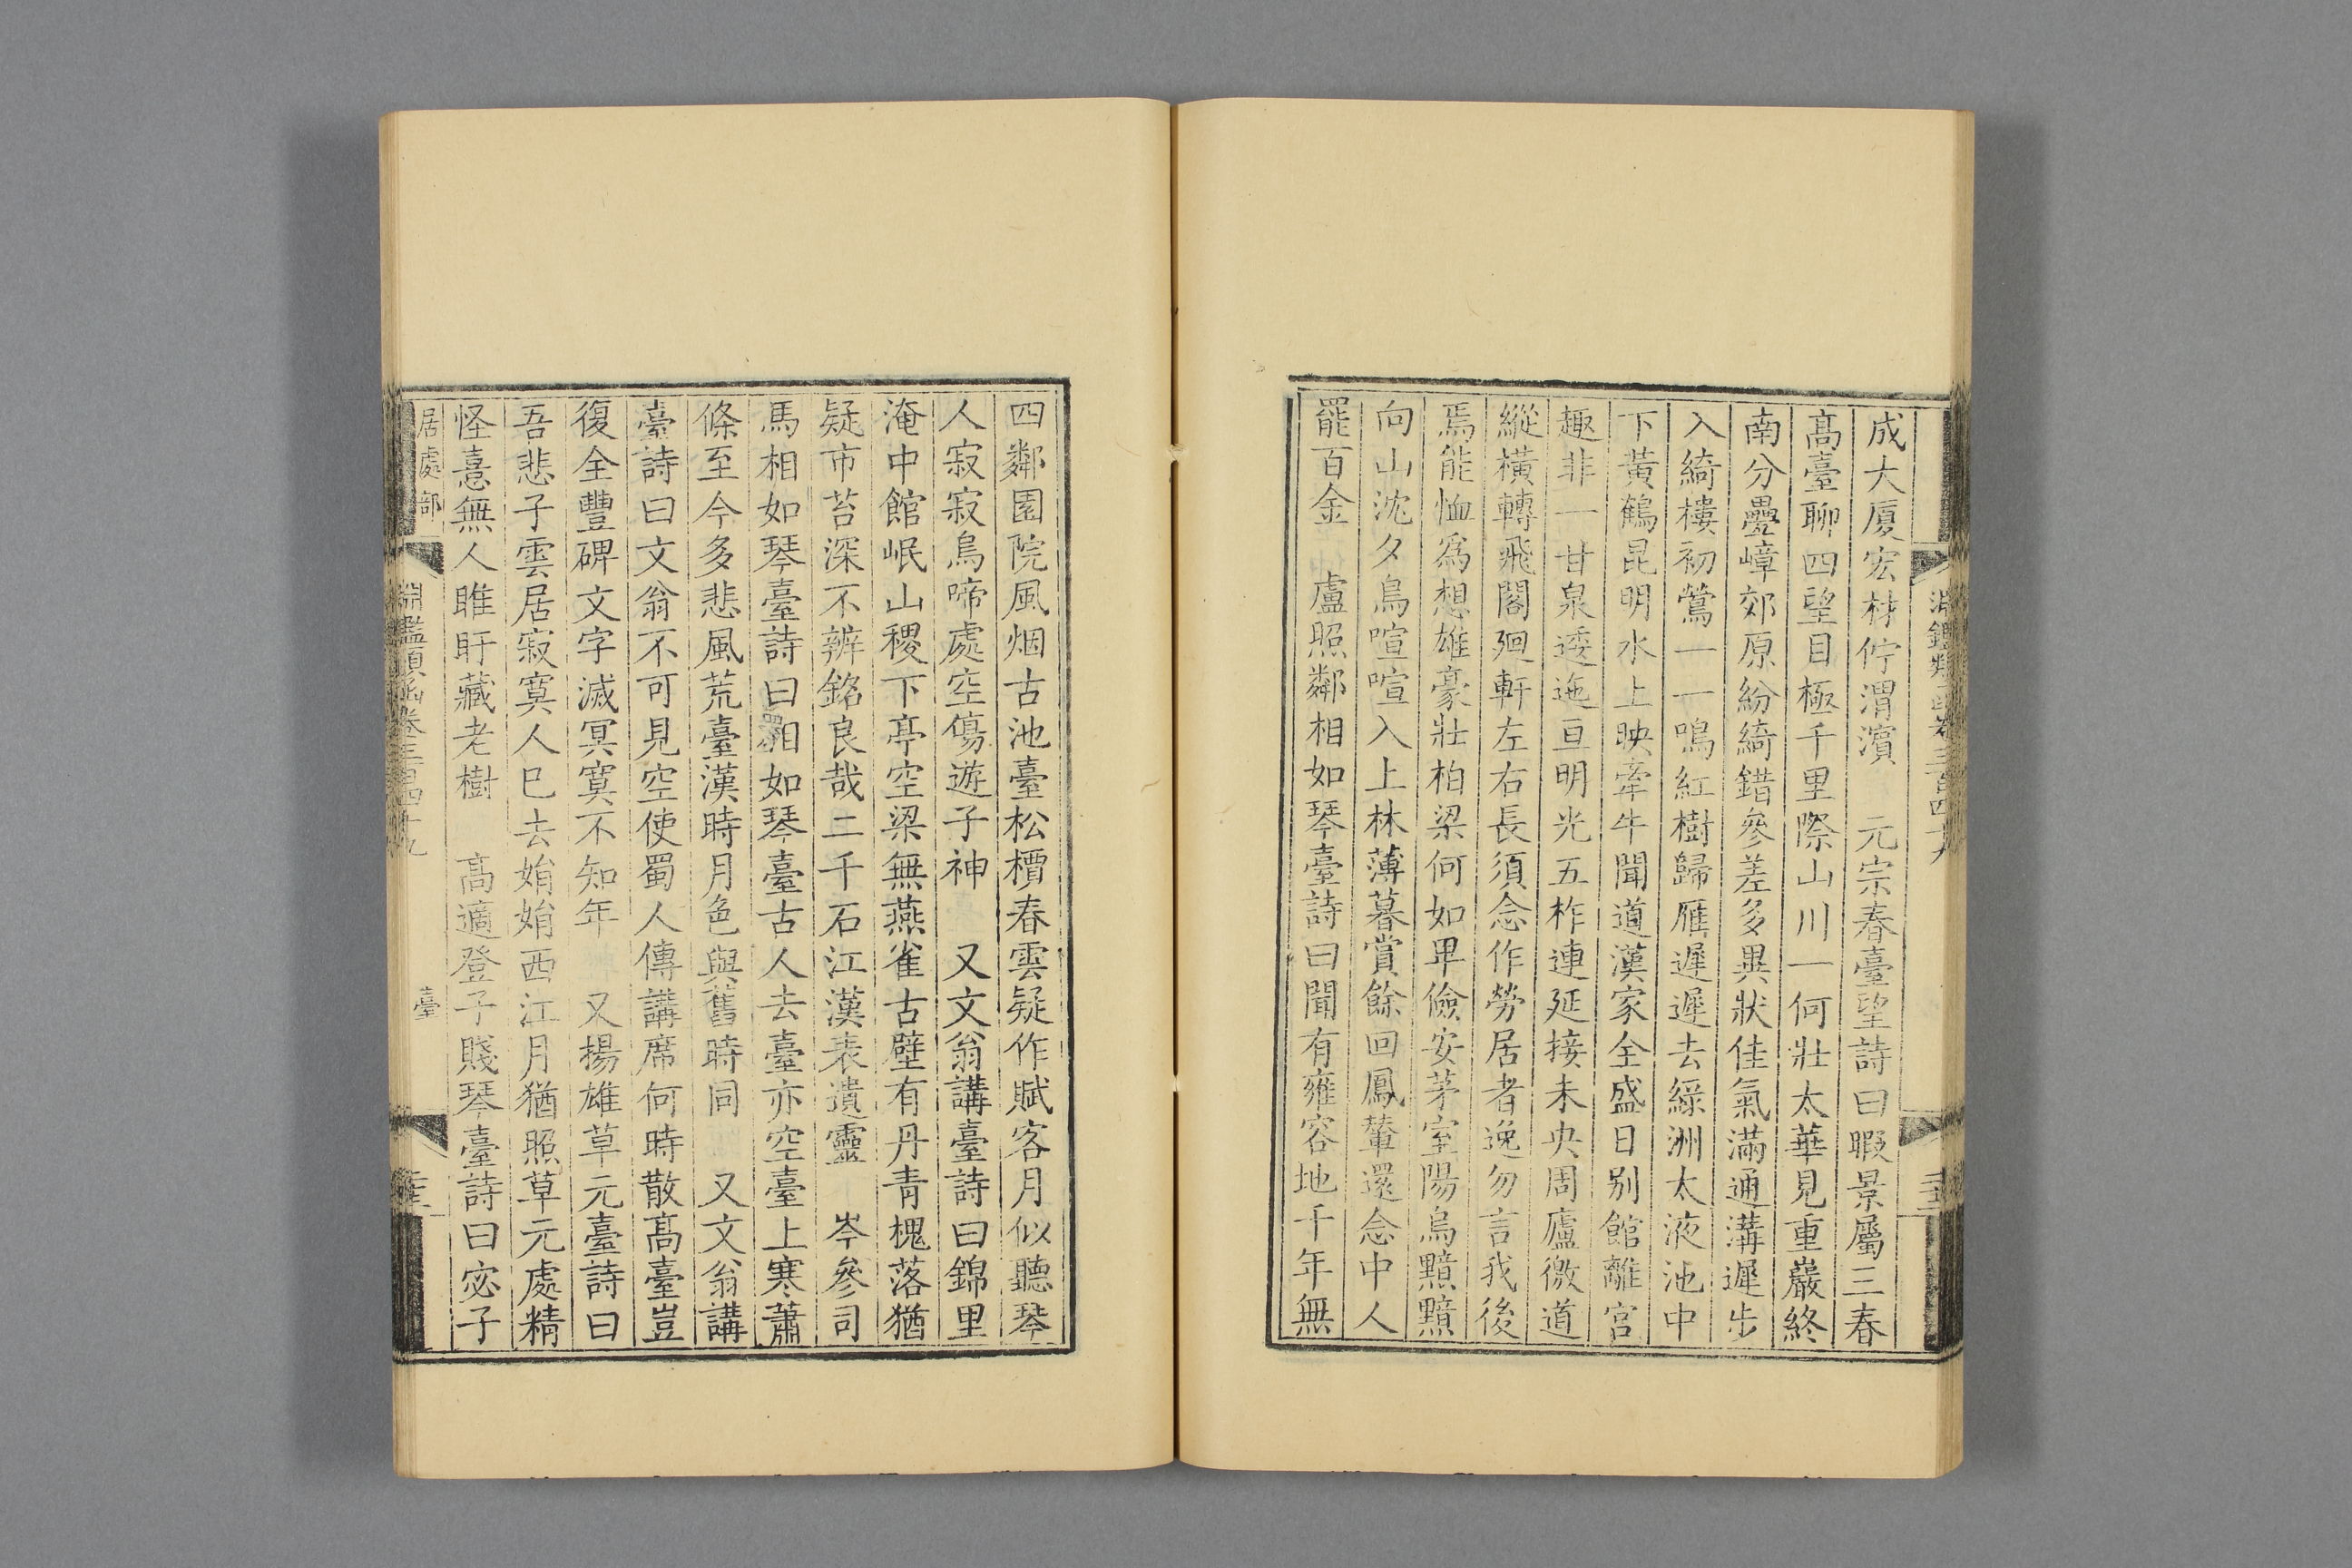 成大厦宏材佇渭濱　元宗春臺望詩曰暇景屬三春
高臺聊四望目極千里際山川一何壯太華見重巖終
南分疊嶂郊原紛綺錯參差多異狀佳氣滿通溝遲步
入綺樓初鶯一一鳴紅樹歸雁遲遲去綠洲太液池中
下黃鶴昆明水上映牽牛聞道漢家全盛日别館離宮
趣非一甘泉逶迤亘明光五柞連延接未央周廬徼道
縱橫轉飛閣廻軒左右長須念作勞居者逸勿言我後
焉能恤爲想雄豪壯柏梁何如卑儉安茅室陽烏黯黯
向山沈夕鳥喧喧入上林薄暮賞餘回鳳輦還念中人
罷百金　盧照鄰相如琴臺詩曰聞有雍容地千年無
四鄰園院風烟古池臺松檟春雲疑作賦客月似聽琴
人寂寂鳥啼處空傷遊子神　又文翁講臺詩曰錦里
淹中館岷山稷下亭空梁無燕雀古壁有丹青槐落猶
疑市苔深不辨銘良哉二千石江漢表遺靈　岑參司
馬相如琴臺詩曰相如琴臺古人去臺亦空臺上寒蕭
條至今多悲風荒臺漢時月色與舊時同　又文翁講
臺詩曰文翁不可見空使蜀人傳講席何時散高臺豈
復全豐碑文字滅冥寞不知年　又揚雄草元臺詩曰
吾悲子雲居寂寞人已去娟娟西江月猶照草元處精
怪憙無人睢盱藏老樹　高適登子賤琴臺詩曰宓子
居處部　淵鑑類函卷三百四十九　臺